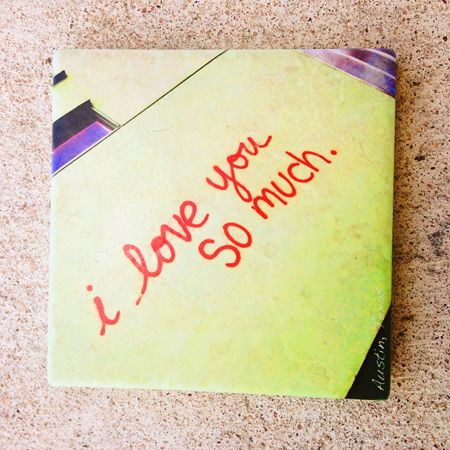 i love you
so much.
Austin,